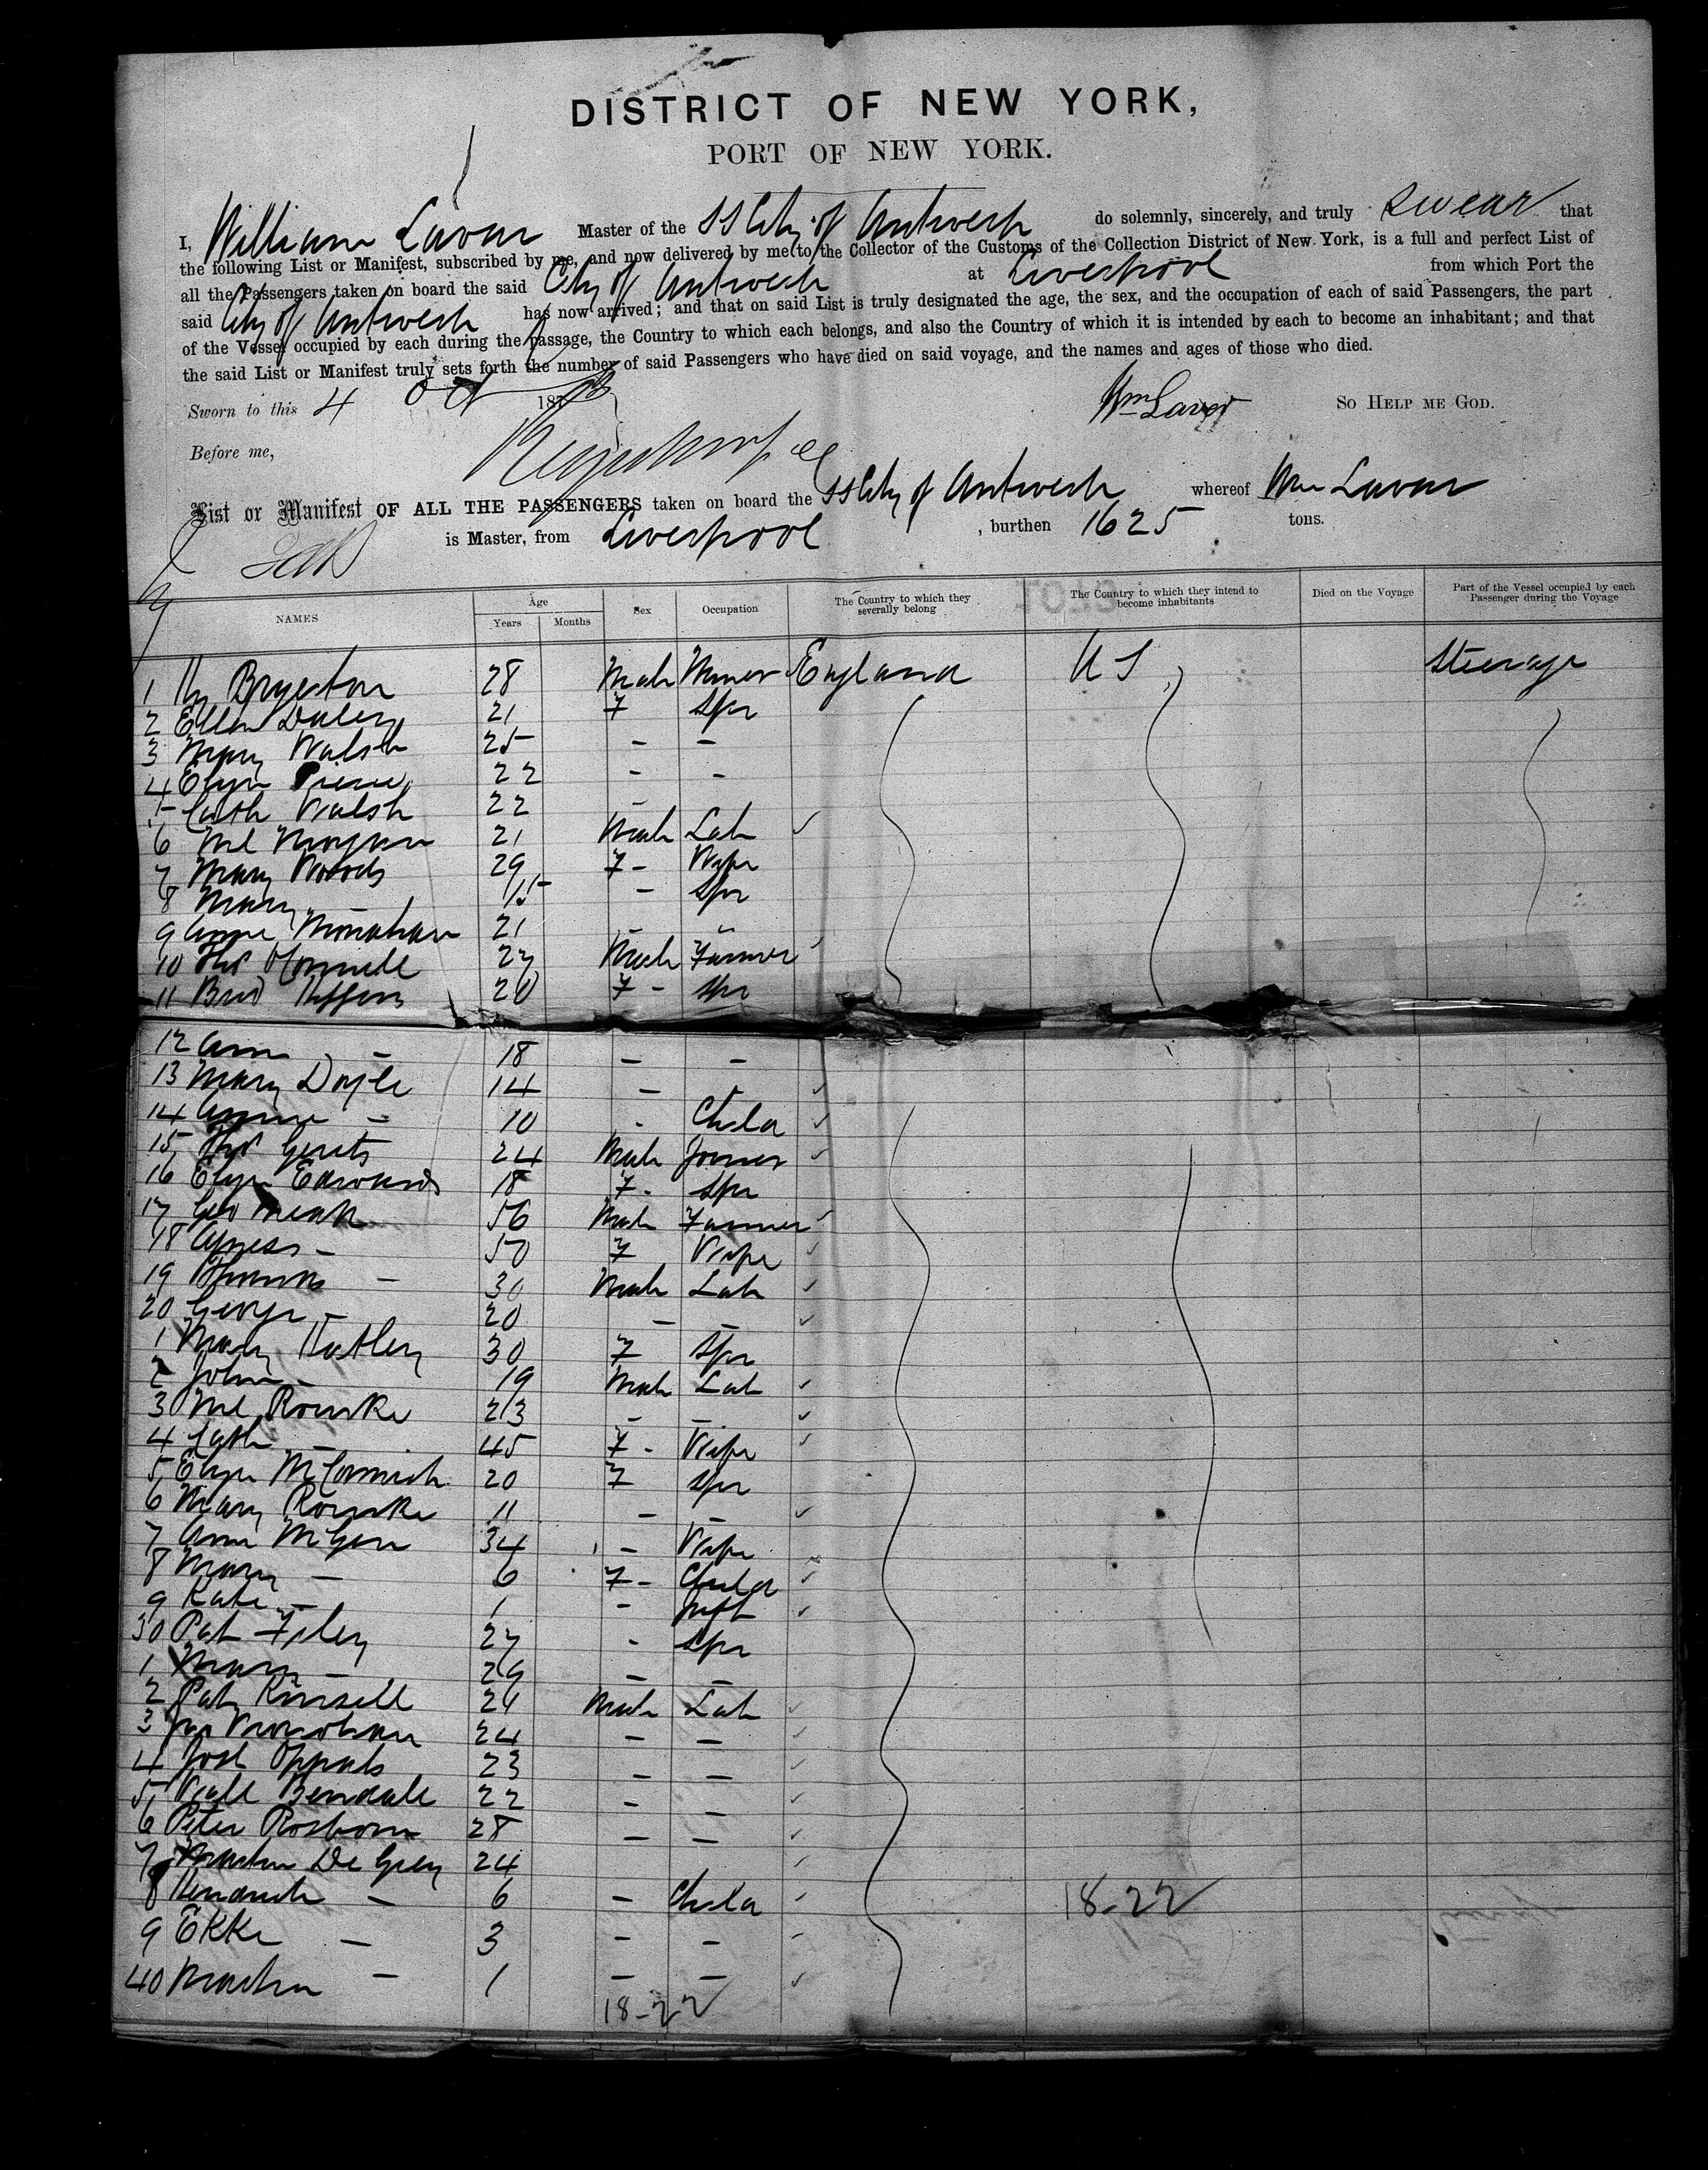 DISTRICT OF NEW YORK,
PORT OF NEW YORK.
I, William Lavar Master of the SS City of Antwerp do solemnly, sincerely, and truly swear that
the following List or Manifest, subscribed by me, and now delivered by me to the Collector of the Customs of the Collection District of New York, is a full and perfect List of
all the Passengers taken on board the said City of Antwerp at Liverpool from which Port the
said City of Antwerp has now arrived; and that on said List is truly designated the age, the sex, and the occupation of each of said Passengers, the part
of the Vessel occupied by each during the passage, the Country to which each belongs, and also the Country of which it is intended by each to become an inhabitant; and that
the said List or Manifest truly sets forth the number of said Passengers who have died on said voyage, and the names and ages of those who died.
Sworn to this 4 Oct 187 Wm Laver SO HELP ME GOD.
Before me,
List or Manifest OF ALL THE PASSENGERS taken on board the SS City of Antwerp whereof Wm Lavar
is Master, from Liverpool , burthen 1625 tons.
NAMES Age Years Months Sex Occupation The Country to which they severally belong The Country to which they intend to become inhabitants Died on the Voyage Part of the Vessel occupied by each Passenger during the Voyage
1 Hy 28 Male England U S Steerage
2 Ellen Daley 21 F Spr
3 Mary Walsh 25 - -
4 Eliza Pierce 22 - -
5 Cath Walsh 22 -
6 Ml Morgan 21 Male Lab
7 Mary Woods 29 F - Wife
8 Mary - 15 - Spr
9 Annie Monahan 21 - -
10 Thos O'Connell 27 Male Farmer
11 Brid 20 F - Spr
12 Ann - 18 - -
13 Mary Doyle 14 - -
14 Annie - 10 - Child
15 Thos 24 Male Joiner
16 Eliza Edwards 18 F - Spr
17 Geo 56 Male Farmer
18 Agness - 50 F Wife
19 Thomas - 30 Male Lab
20 George - 20 - -
1 Mary Hatley 30 F Spr
2 John - 19 Male Lab
3 Ml Rourke 23 - -
4 Cath - 45 F - Wife
5 Eliza McCormick 20 F Spr
6 Mary Rourke 11 - -
7 Ann 34 - Wife
8 Mary - 6 F - Child
9 Kate - 1 - Inft
30 Pat 27 - Spr
1 Mary - 29 - -
2 Pat Kinsell 21 Male Lab
3 Jas 24 - -
4 Josh 23 - -
5 Bendall 22 - -
6 Peter 28 - -
7 De Grey 24
8 - 6 - Child 18-22
9 Ekke - 3 - -
40 - 1 - -
18-22